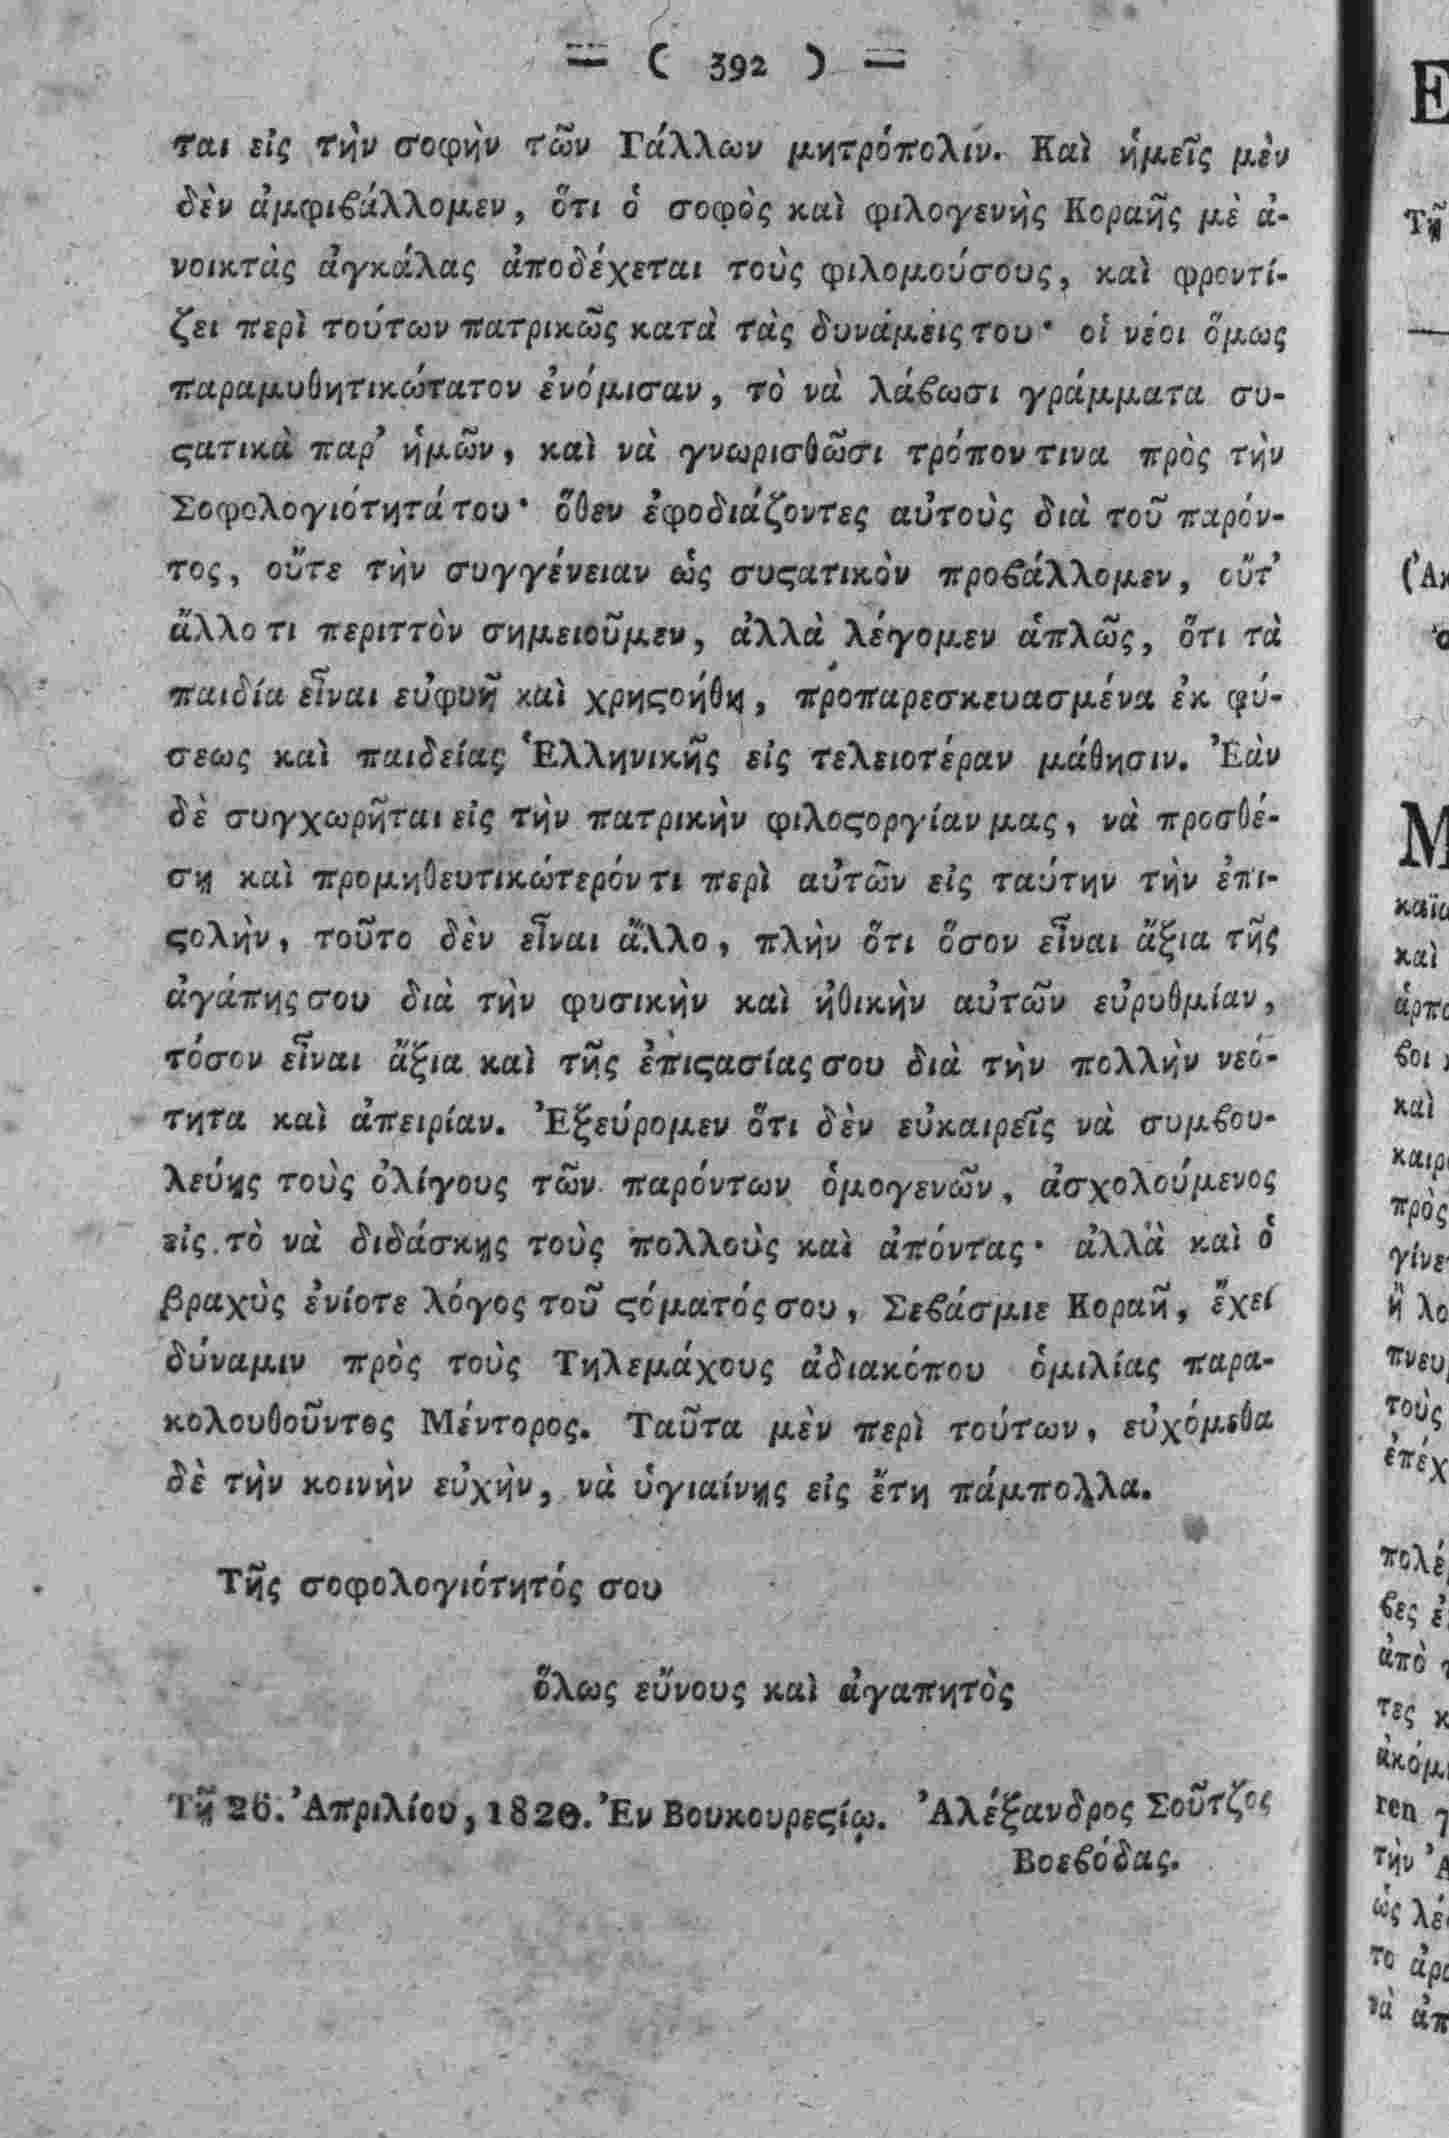 = ( 392 ) =
ται εἰς τὴν σοφὴν τῶν Γάλλων μητρόπολιν. Καὶ ἡμεῖς μὲν
δὲν ἀμφιϐάλλομεν, ὅτι ὁ σοφὸς καὶ φιλογενὴς Κοραῆς μὲ ἀ-
νοικτὰς ἀγκάλας ἀποδέχεται τοὺς φιλομούσους, καὶ φροντί-
ζει περὶ τούτων πατρικῶς κατὰ τὰς δυνάμεις του· οἱ νέοι ὅμως
παραμυθητικώτατον ἐνόμισαν, τὸ νὰ λάϐωσι γράμματα συ-
ϛατικὰ παρ' ἡμῶν, καὶ νὰ γνωρισθῶσι τρόπον τινα πρὸς τὴν
Σοφολογιότητά του· ὅθεν ἐφοδιάζοντες αὐτοὺς διὰ τοῦ παρόν-
τος, οὔτε τὴν συγγένειαν ὡς συϛατικὸν προϐάλλομεν, οὔτ'
ἄλλο τι περιττὸν σημειοῦμεν, ἀλλὰ λέγομεν ἁπλῶς, ὅτι τὰ
παιδία εἶναι εὐφυῆ καὶ χρηϛοήθη, προπαρεσκευασμένα ἐκ φύ-
σεως καὶ παιδείας Ἑλληνικῆς εἰς τελειοτέραν μάθησιν. Ἐὰν
δὲ συγχωρῆται εἰς τὴν πατρικὴν φιλοϛοργίαν μας, νὰ προσθέ-
ση καὶ προμηθευτικώτερόν τι περὶ αὐτῶν εἰς ταύτην τὴν ἐπι-
ϛολὴν, τοῦτο δὲν εἶναι ἄλλο, πλὴν ὅτι ὅσον εἶναι ἄξια τῆς
ἀγάπης σου διὰ τὴν φυσικὴν καὶ ἠθικὴν αὐτῶν εὐρυθμίαν,
τόσον εἶναι ἄξια καὶ τῆς ἐπιϛασίας σου διὰ τὴν πολλὴν νεό-
τητα καὶ ἀπειρίαν. Ἐξεύρομεν ὅτι δὲν εὐκαιρεῖς νὰ συμϐου-
λεύῃς τοὺς ὀλίγους τῶν παρόντων ὁμογενῶν, ἀσχολούμενος
εἰς τὸ νὰ διδάσκῃς τοὺς πολλοὺς καὶ ἀπόντας· ἀλλὰ καὶ ὁ
βραχὺς ἐνίοτε λόγος τοῦ ϛόματός σου, Σεϐάσμιε Κοραῆ, ἔχει
δύναμιν πρὸς τοὺς Τηλεμάχους ἀδιακόπου ὁμιλίας παρα-
κολουθοῦντος Μέντορος. Ταῦτα μὲν περὶ τούτων, εὐχόμεθα
δὲ τὴν κοινὴν εὐχὴν, νὰ ὑγιαίνῃς εἰς ἔτη πάμπολλα.
Τῆς σοφολογιότητός σου
ὅλως εὔνους καὶ ἀγαπητὸς
Τῇ 26. Ἀπριλίου, 1820. Ἐν Βουκουρεϛίῳ. Ἀλέξανδρος Σοῦτζος
Βοεϐόδας.
Τῇ
καὶ
καὶ
πρὸς
ἢ
τοὺς
ἀπὸ
ren
τὴν
ὡς
το
νὰ